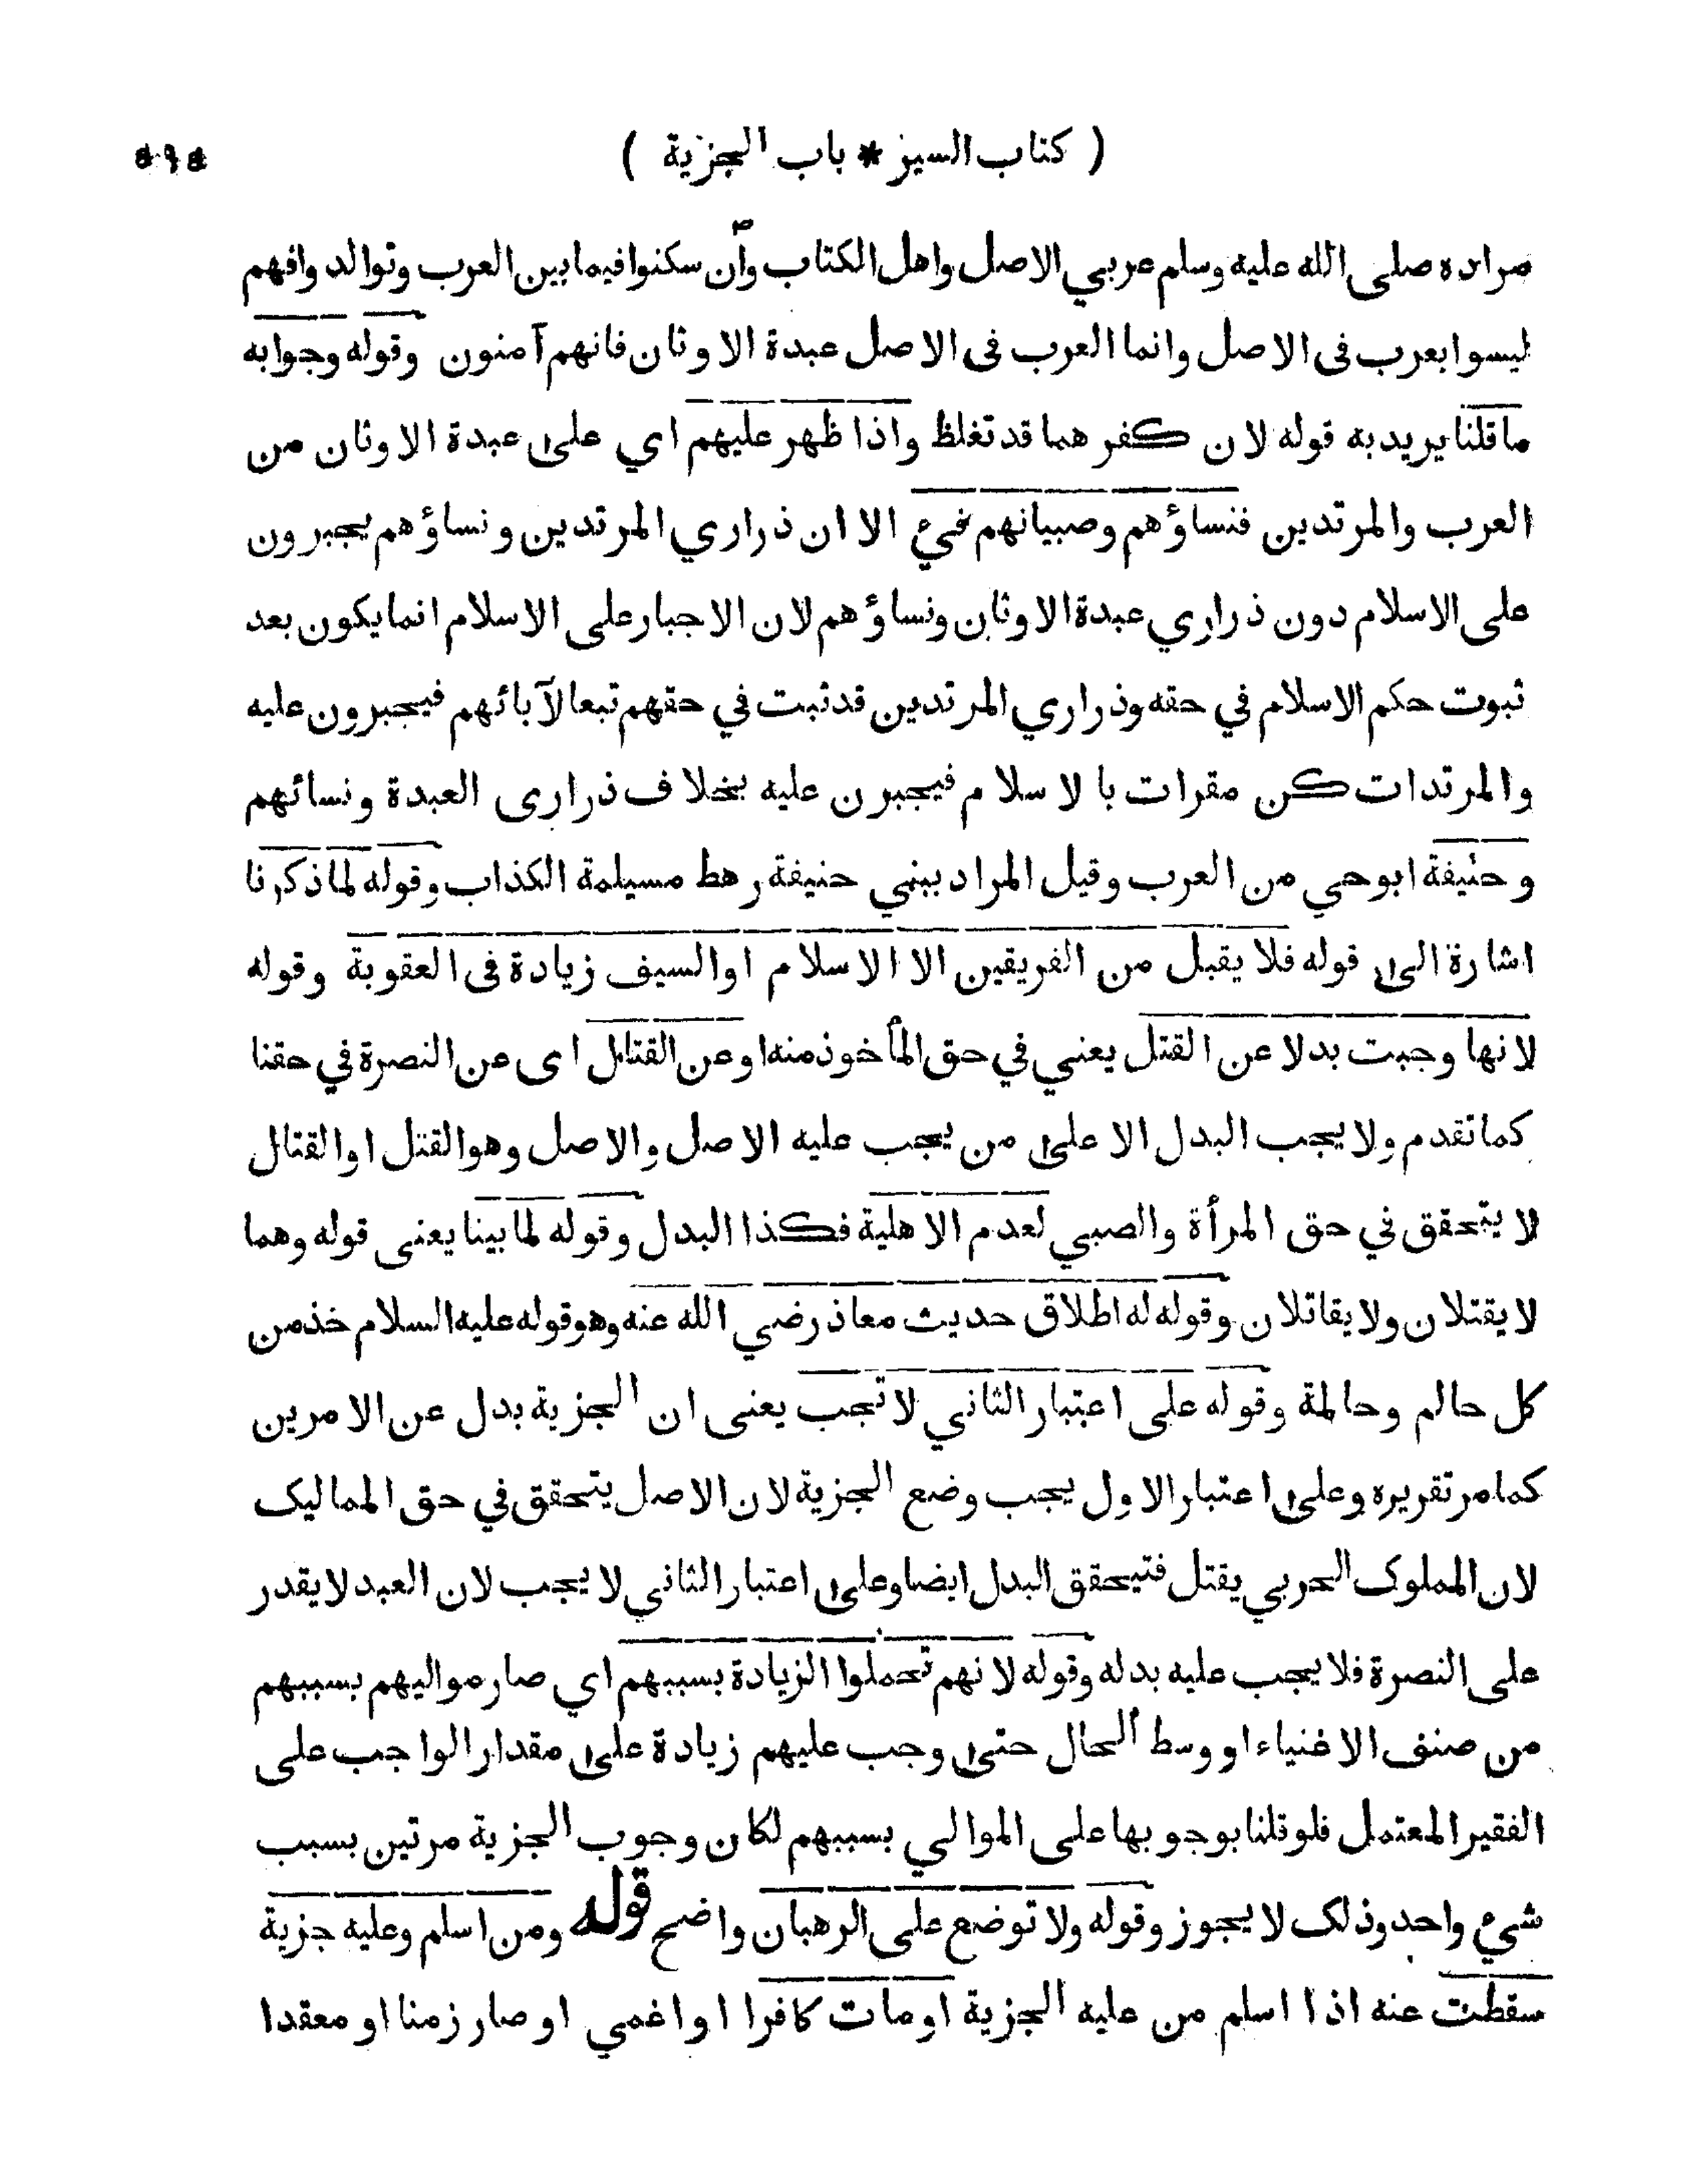 ( كتاب السيز * باب الجزية )
مراده صلى الله عليه وسلم عربي الاصل واهل الكتاب وان سكنوا فيما بين العرب وتوالدوا فهم
ليسوا بعرب فى الاصل وانما العرب فى الاصل عبدة الاوثان فانهم آمنون وقوله وجوابه
ما قلنا يريد به قوله لان كفرهما قد تغلظ واذا ظهر عليهم اي على عبدة الاوثان من
العرب والمرتدين فنساؤهم وصبيانهم فيء الا ان ذراري المرتدين ونساؤهم يجبرون
على الاسلام دون ذراري عبدة الاوثان ونساؤهم لان الاجبار على الاسلام انما يكون بعد
ثبوت حكم الاسلام في حقه وذراري المرتدين قد ثبت في حقهم تبعا لآبائهم فيجبرون عليه
والمرتدات كن مقرات بالاسلام فيجبرن عليه بخلاف ذرارى العبدة ونسائهم
وحنيفة ابوحي من العرب وقيل المراد ببني حنيفة رهط مسيلمة الكذاب وقوله لما ذكرنا
اشارة الى قوله فلا يقبل من الفريقين الا الاسلام او السيف زيادة فى العقوبة وقوله
لانها وجبت بدلا عن القتل يعني في حق المأخوذ منه او عن القتال اى عن النصرة في حقنا
كما تقدم ولا يجب البدل الا على من يجب عليه الاصل والاصل وهو القتل او القتال
لا يتحقق في حق المرأة والصبي لعدم الاهلية فكذا البدل وقوله لما بينا يعنى قوله وهما
لا يقتلان ولا يقاتلان وقوله له اطلاق حديث معاذ رضي الله عنه وهو قوله عليه السلام خذ من
كل حالم وحالمة وقوله على اعتبار الثاني لا تجب يعنى ان الجزية بدل عن الامرين
كما مر تقريره وعلى اعتبار الاول يجب وضع الجزية لان الاصل يتحقق في حق المماليک
لان المملوک الحربي يقتل فتيحقق البدل ايضا وعلى اعتبار الثاني لا يجب لان العبد لا يقدر
على النصرة فلا يجب عليه بدله وقوله لانهم تحملوا الزيادة بسببهم اي صار مواليهم بسببهم
من صنف الاغنياء او وسط الحال حتى وجب عليهم زيادة على مقدار الواجب على
الفقير المعتمل فلو قلنا بوجوبها على الموالي بسببهم لكان وجوب الجزية مرتين بسبب
شيء واحد وذلک لا يجوز وقوله ولا توضع على الرهبان واضح قوله ومن اسلم وعليه جزية
سقطت عنه اذا اسلم من عليه الجزية او مات كافرا او اغمي او صار زمنا او معقدا